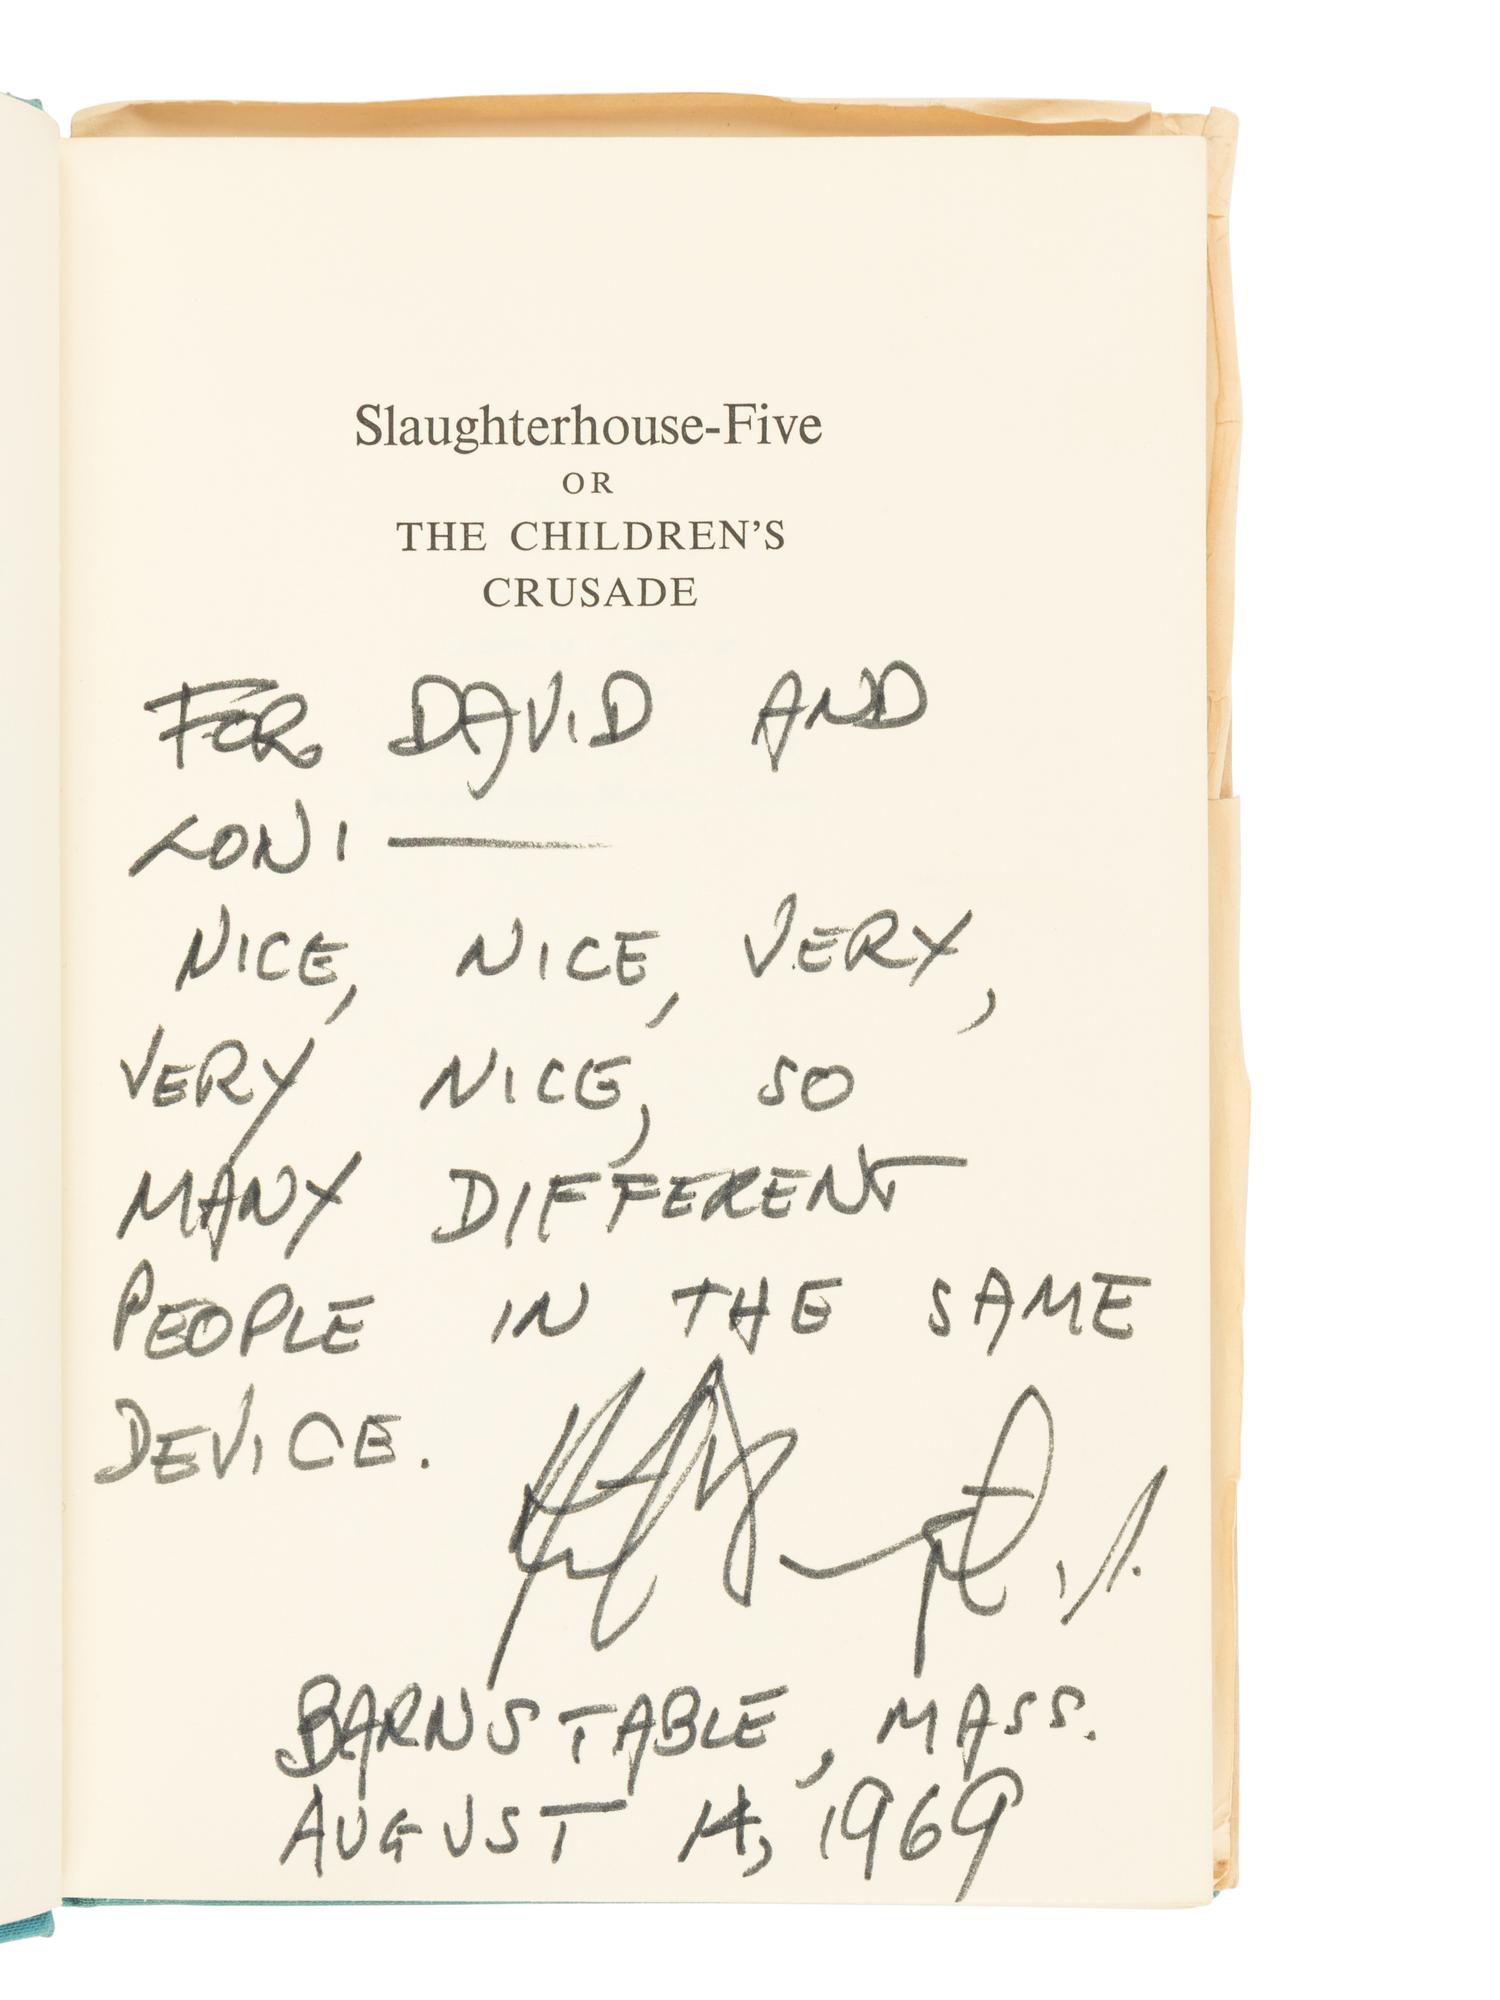 Slaughterhouse-Five
OR
THE CHILDREN'S
CRUSADE
FOR DAVID AND
LONI —
NICE, NICE, VERY,
VERY NICE, SO
MANY DIFFERENT
PEOPLE IN THE SAME
DEVICE.
BARNSTABLE, MASS.
AUGUST 14, 1969